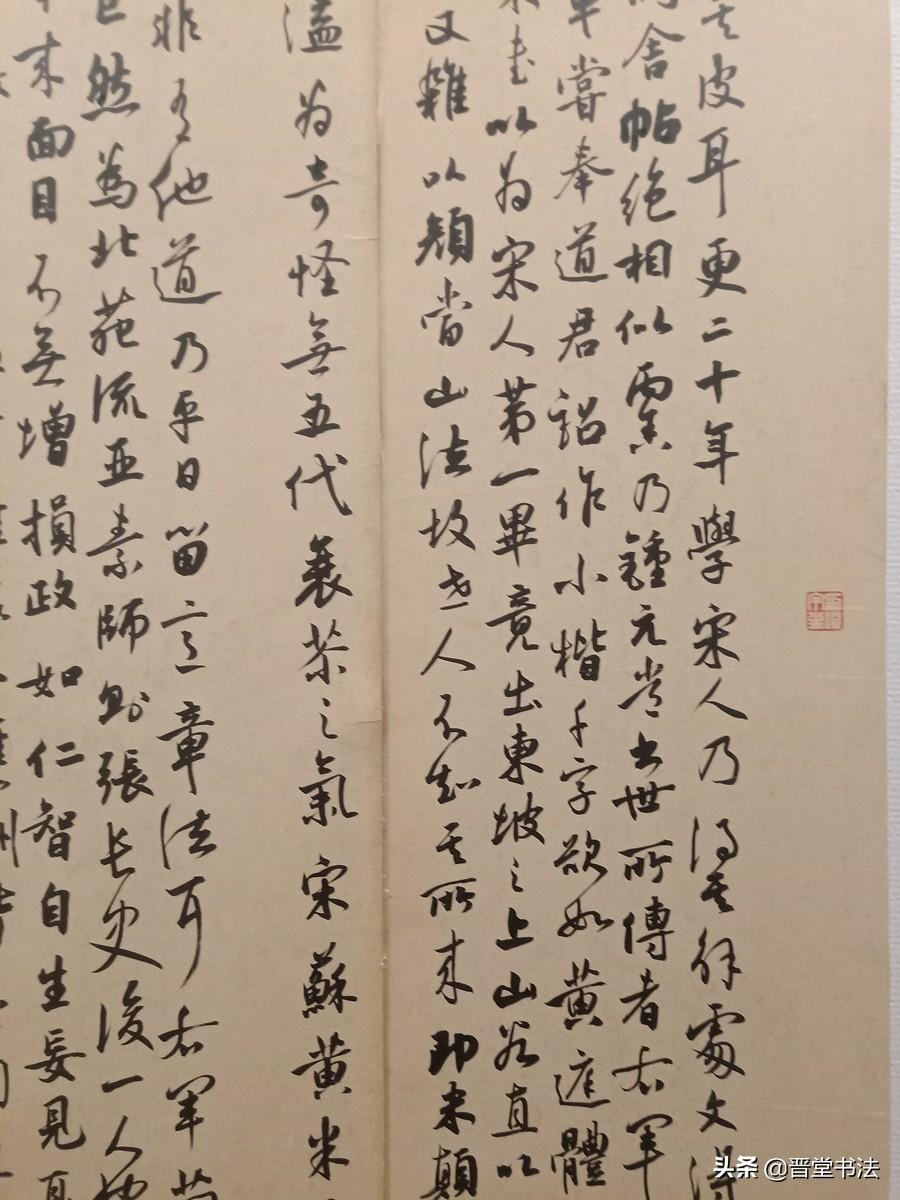 皮耳更二十年學宋人乃得其解處文
舍帖絕相似累乃鍾元常書世所傳者右軍
嘗奉道君詔作小楷千字欲如黃庭體
以為宋人第一畢竟出東坡之上山谷直以
又雜以顏常山法故世人不知其所來即米顛
溢為奇怪無五代衰茶之氣宋蘇黃米
非有他道乃平日留意章法耳右軍
然為北苑流亞素師則張長史後一人
來面目不無增損政如仁智自生妄見
头条 @晋堂书法